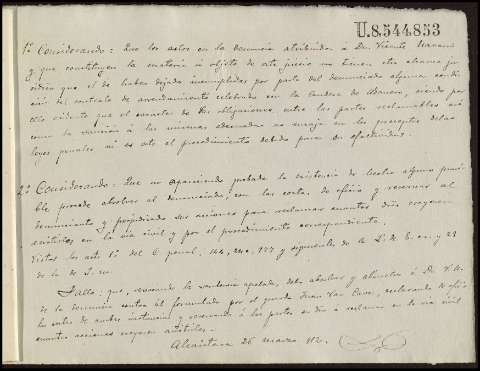 U.8.544.853
1º Considerando: Que los actos en la denuncia atribuidos á Dn. Vicente
y que constituyen la materia ú objeto de este juicio no tienen otro alcance ju-
ridico que el de haber dejado incumplidas por parte del denunciado alguna condi-
ción del contrato de arrendamiento celebrado en la de siendo por
ello evidente que el caracter de las obligaciones entre las partes reclamables así
como la sanción á las mismas adecuada no encaja en los preceptos de las
leyes penales ni es este el procedimiento debido para su efectividad.
2º Considerando: Que no apareciendo probada la existencia de hecho alguno puni-
ble procede absolver al denunciado, con las costas de oficio y reservar al
denunciante y perjudicado sus acciones para reclamar cuantos dños creyeren
asistirles en la via civil y por el procedimiento correspondiente.
Vistos los arts 1º del C. penal, 144, 240, 777 y siguientes de la L. de E. cr. y 21
de la de J. m.
Fallo: que, revocando la sentencia apelada, debo absolver y absuelvo á D. V. N.
de la denuncia contra él formulada por el guarda Juan declarando de oficio
las costas de ambas instancias y reservando á las partes su dño á reclamar en la via civil
cuantas acciones creyeren asistirles.
Alcántara 26 marzo